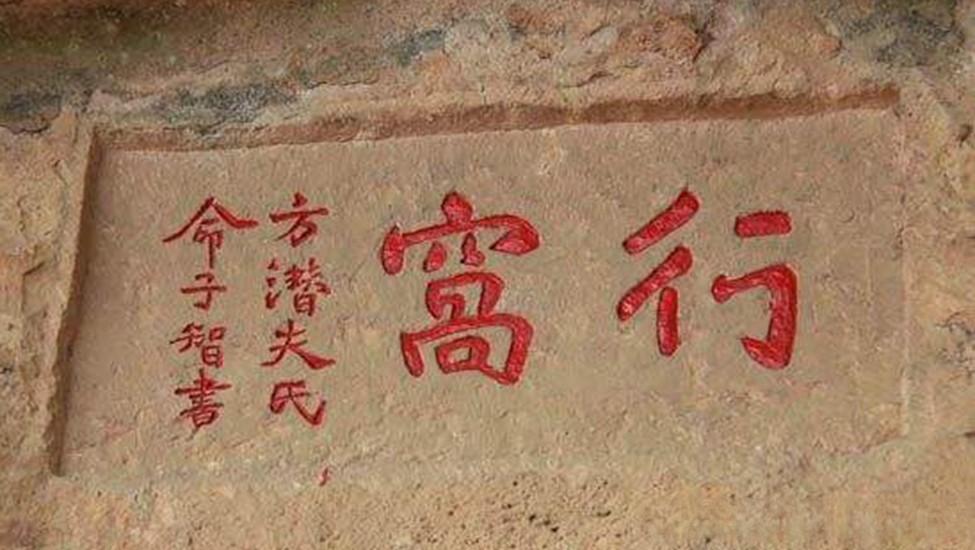 行窩
方潜夫氏
命子智書